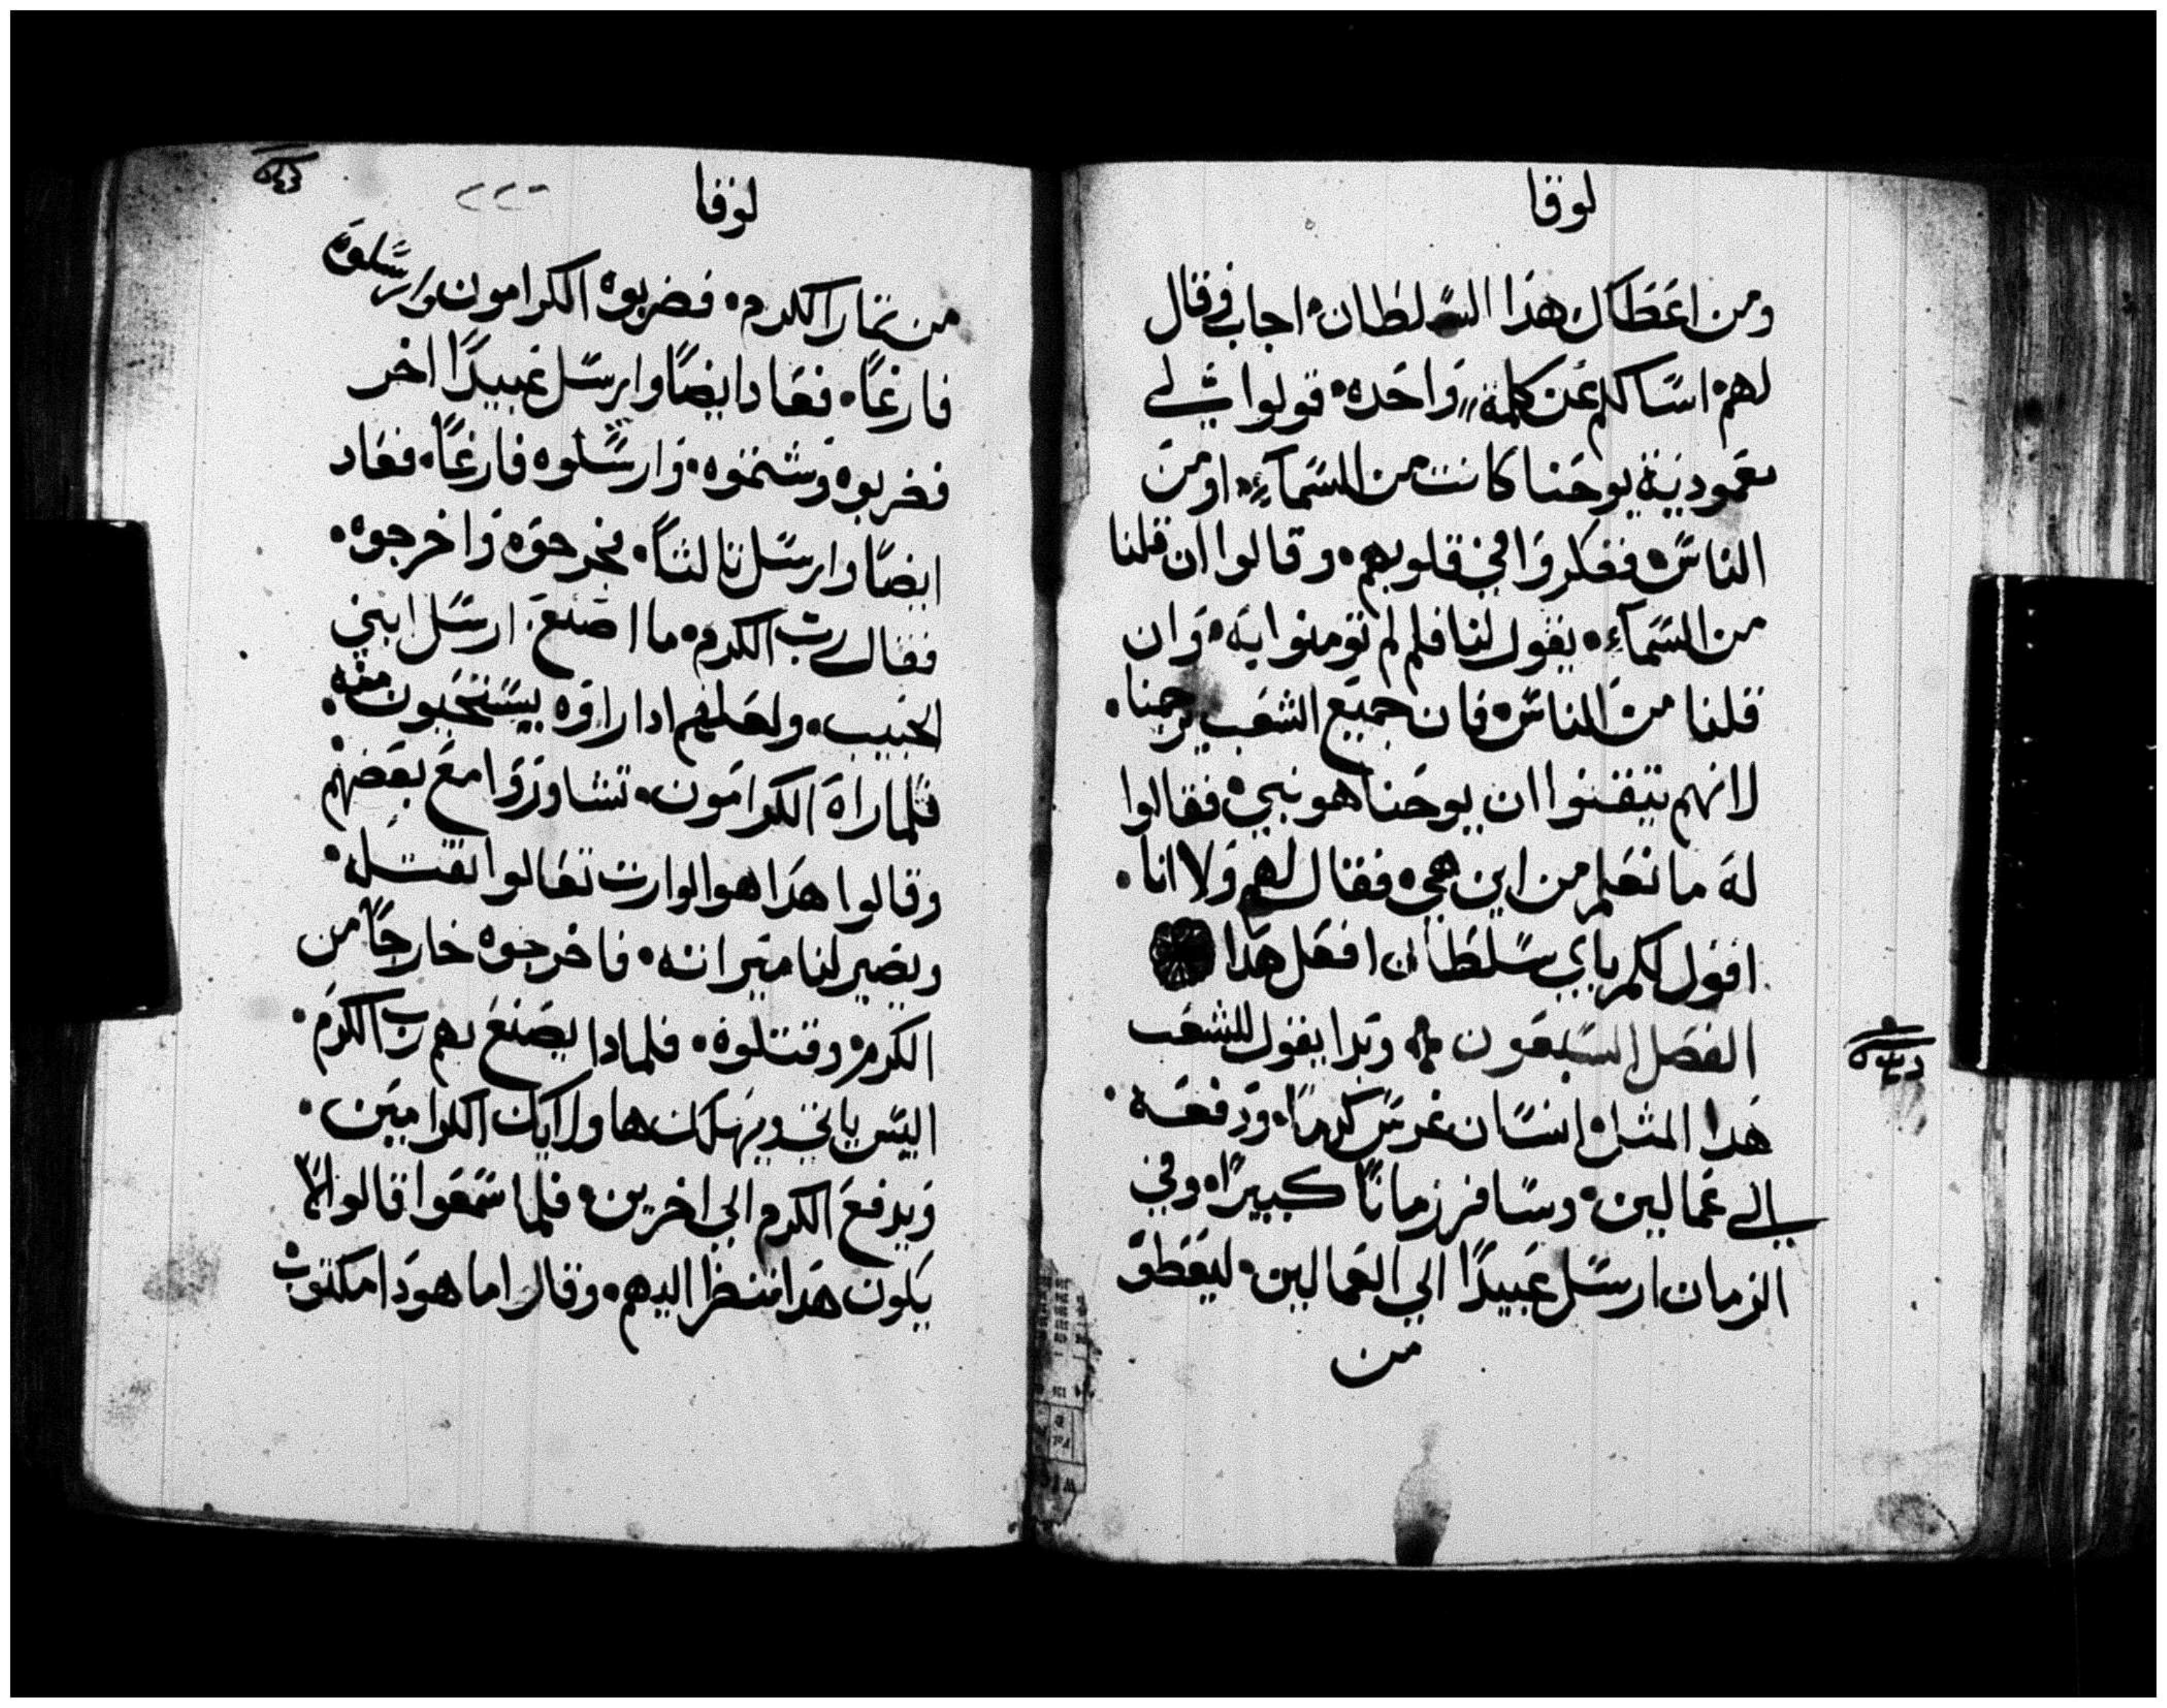 لوقا
ومن اعطاك هذا السلطان. اجاب وقال
لهم. اسالكم عن كلمة واحده. قولوا لي
معمودية يوحنا كانت من السماء. او من
الناس. ففكروا في قلوبهم. وقالوا ان قلنا
من السماء. يقول لنا فلم لم تومنوا به. وان
قلنا من الناس فان جميع الشعب يرجمنا.
لانهم تيقنوا ان يوحنا هو نبي. فقالوا
له ما نعلم من اين هي. فقال لهم ولا انا.
اقول لكم باي سلطان افعل هذا
الفصل السبعون وبدا يقول للشعب
هدا المثل. انسان غرس كرما. ودفعه.
الى عمالين. وسافر زمانا كبيرا. وفي
الزمان ارسل عبيدا الي العمالين. ليعطو
من
لوقا
٢٢٠
من تمار الكرم. فضربوه الكرامون وارسلوه
فارغا. فعاد ايضا وارسل عبيدا اخر
فضربوه وشتموه. وارسلوه فارغا. فعاد
ايضا وارسل تالثا. فجرحوه واخرجوه.
فقال رب الكرم. ما اصنع. ارسل ابني
الحبيب. ولعلهم ادا راوه يستحيون منه.
فلما راه الكرامون. تشاوروا مع بعضهم
وقالوا هدا هو الوارت تعالوا نقتله.
ويصير لنا ميراته. فاخرجوه خارجا من
الكرم. وقتلوه. فلمادا يصنع بهم رب الكرم.
اليس ياتي ويهلك هاولايك الكرامين.
ويدفع الكرم الي اخرين. فلما سمعوا قالوا لا
يكون هدا فنظر اليهم. وقال اما هو دا مكتوب